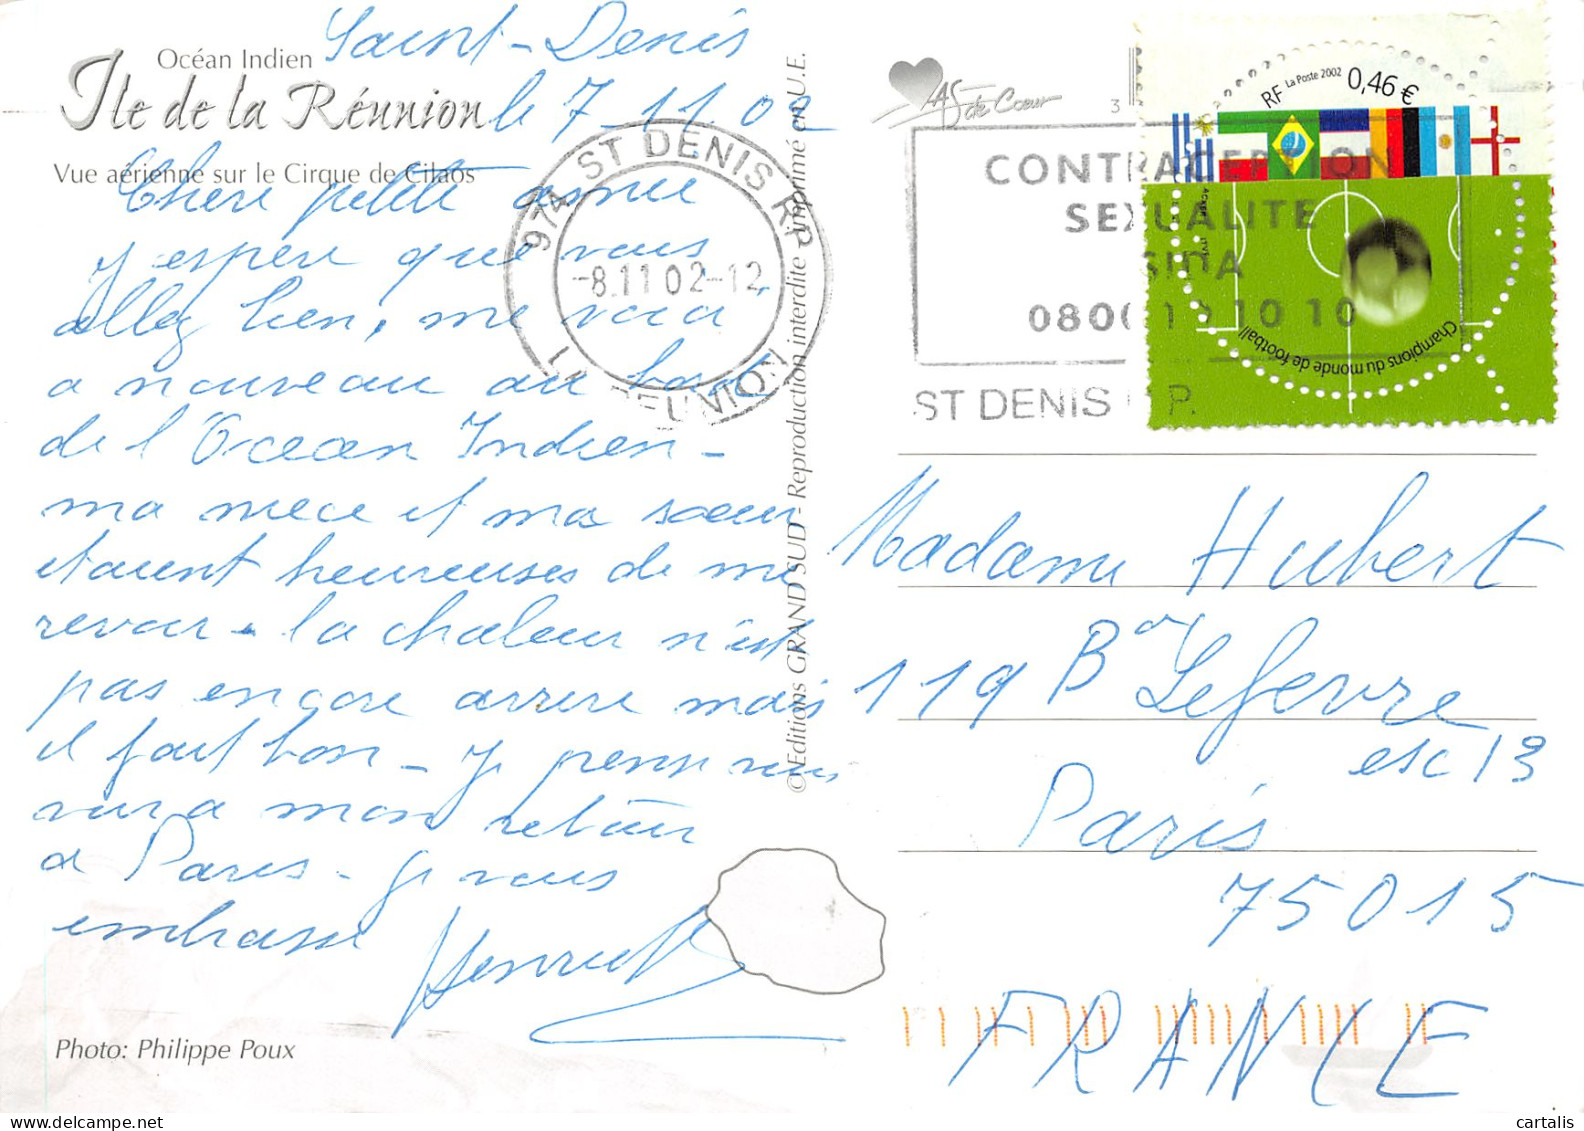 Saint-Denis
le 7-11.02
Océan Indien
Ile de la Réunion
Vue aérienne sur le Cirque de Cilaos
Chère petite
j espere que vous
allez bien, me voici
a nouveau au bord
de l'Ocean Indien -
ma niece et ma sœur
etaient heureuses de me
revoir - la chaleur n'est
pas encore arrivée mais
il fait bon - je pense vous
voir a mon retour
a Paris - je vous
embrasse
Photo: Philippe Poux
© Editions GRAND SUD - Reproduction interdite - imprimé en U.E.
974 ST DENIS RP
-8.11 02-12
LA REUNION
AS de Cœur
3
CONTRACEPTION
SEXUALITE
SIDA
ST DENIS R.P.
RF La Poste 2002 0,46 €
Champions du monde de football
Madame Hubert
119 Bd Lefevre
esc 13
Paris
75015
FRANCE
cartalis